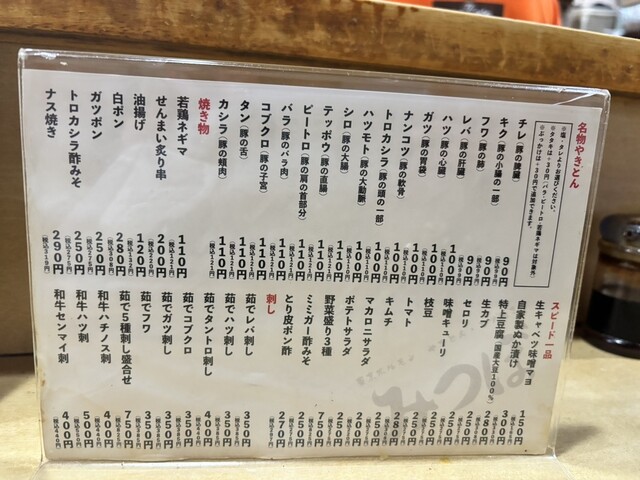 名物やきとん
※塩・タレよりお選びください。
※タタキは+30円(バラ・ピートロ・若鶏ネギマは対象外)
※ぶっかけは+30円で追加できます。
チレ(豚の脾臓) 90円
キク(豚の小腸の一部) 90円
フワ(豚の肺) 90円
レバ(豚の肝臓)
ハツ(豚の心臓)
ガツ(豚の胃袋)
ナンコツ(豚の軟骨)
トロカシラ(豚の頭の一部) 110円
ハツモト(豚の大動脈) 110円
シロ(豚の大腸) 110円
テッポウ(豚の直腸) 110円
ピートロ(豚の肩の首部分) 110円
バラ(豚のバラ肉) 110円
コブクロ(豚の子宮) 110円
タン(豚の舌) 110円
カシラ(豚の頬肉) 110円
焼き物
若鶏ネギマ 110円
せんまい炙り串 200円
油揚げ 120円
白ボン 280円
ガツポン 250円
トロカシラ酢みそ 250円
ナス焼き 290円
スピード一品
生キャベツ味噌マヨ 150円
自家製ぬか漬け 300円
特上豆腐(国産大豆100%) 280円
生カブ 250円
セロリ 250円
味噌キューリ 250円
枝豆 250円
トマト 280円
キムチ 250円
マカロニサラダ 250円
ポテトサラダ 250円
野菜盛り3種 750円
ミミガー酢みそ 250円
とり皮ポン酢 270円
刺し
茹でレバ刺し 350円
茹でハツ刺し 350円
茹でタントロ刺し 400円
茹でコブクロ 350円
茹でガツ刺し 350円
茹でフワ 350円
茹で5種刺し盛合せ 750円
和牛ハチノス刺 400円
和牛ハツ刺 500円
和牛センマイ刺 400円